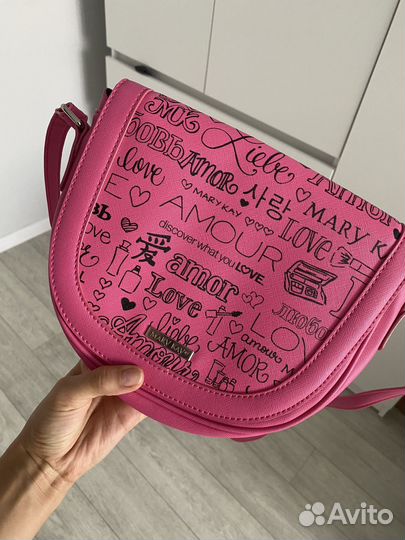 Liebe
ЮБОВЬ
love
AMOR
사랑
MARY KAY
MARY K
LOVE
AMOUR
LOVE
discover what you LOVE
爱
amor
Love
любо
LO
Love
AMOR
amour
MARY KAY
Avito